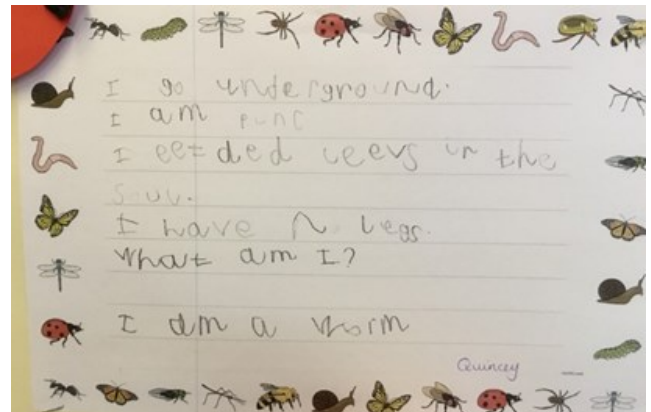 I go underground.
I am punc
I eet ded leevs in the
soul.
I have no legs.
What am I?
I am a worm
Quincey